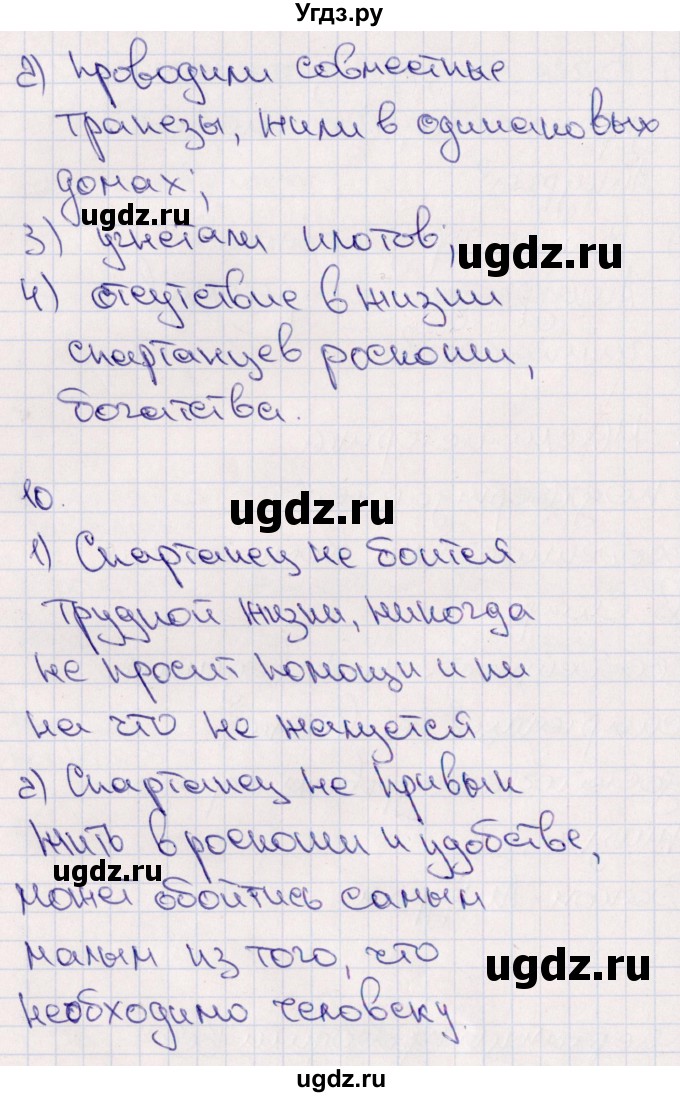 Угдз.ру
2) проводили совместные
трапезы, жили в одинаковых
домах;
ugdz.ru
3) угнетали илотов;
ugdz.ru
4) отсутствие в жизни
спартанцев роскоши,
богатства.
10.
ugdz.ru
1) Спартанец не боится
трудной жизни, никогда
не просит помощи и ни
на что не жалуется
2) Спартанец не привык
жить в роскоши и удобстве,
ugdz.ru
может обойтись самым
малым из того, что
ugdz.ru
необходимо человеку.
ugdz.ru